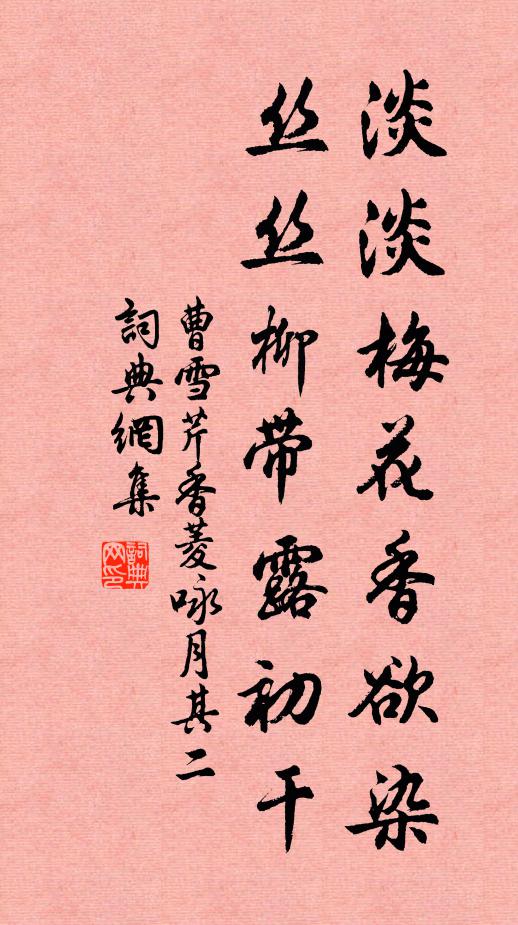 淡淡梅花香欲染
丝丝柳带露初干
曹雪芹香菱咏月其二
詞典網集
詞典
网印